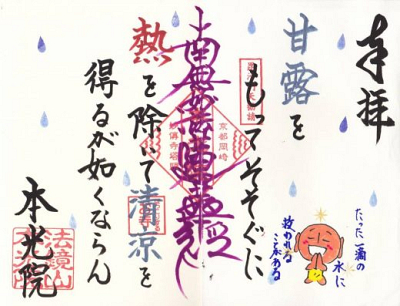 奉拝
甘露を
もってそそぐに
南無妙法蓮華経
熱を除いて清涼を
得るが如くならん
本光院
たった一滴の
水に
救われる
ことがある
京都岡崎
法鏡山